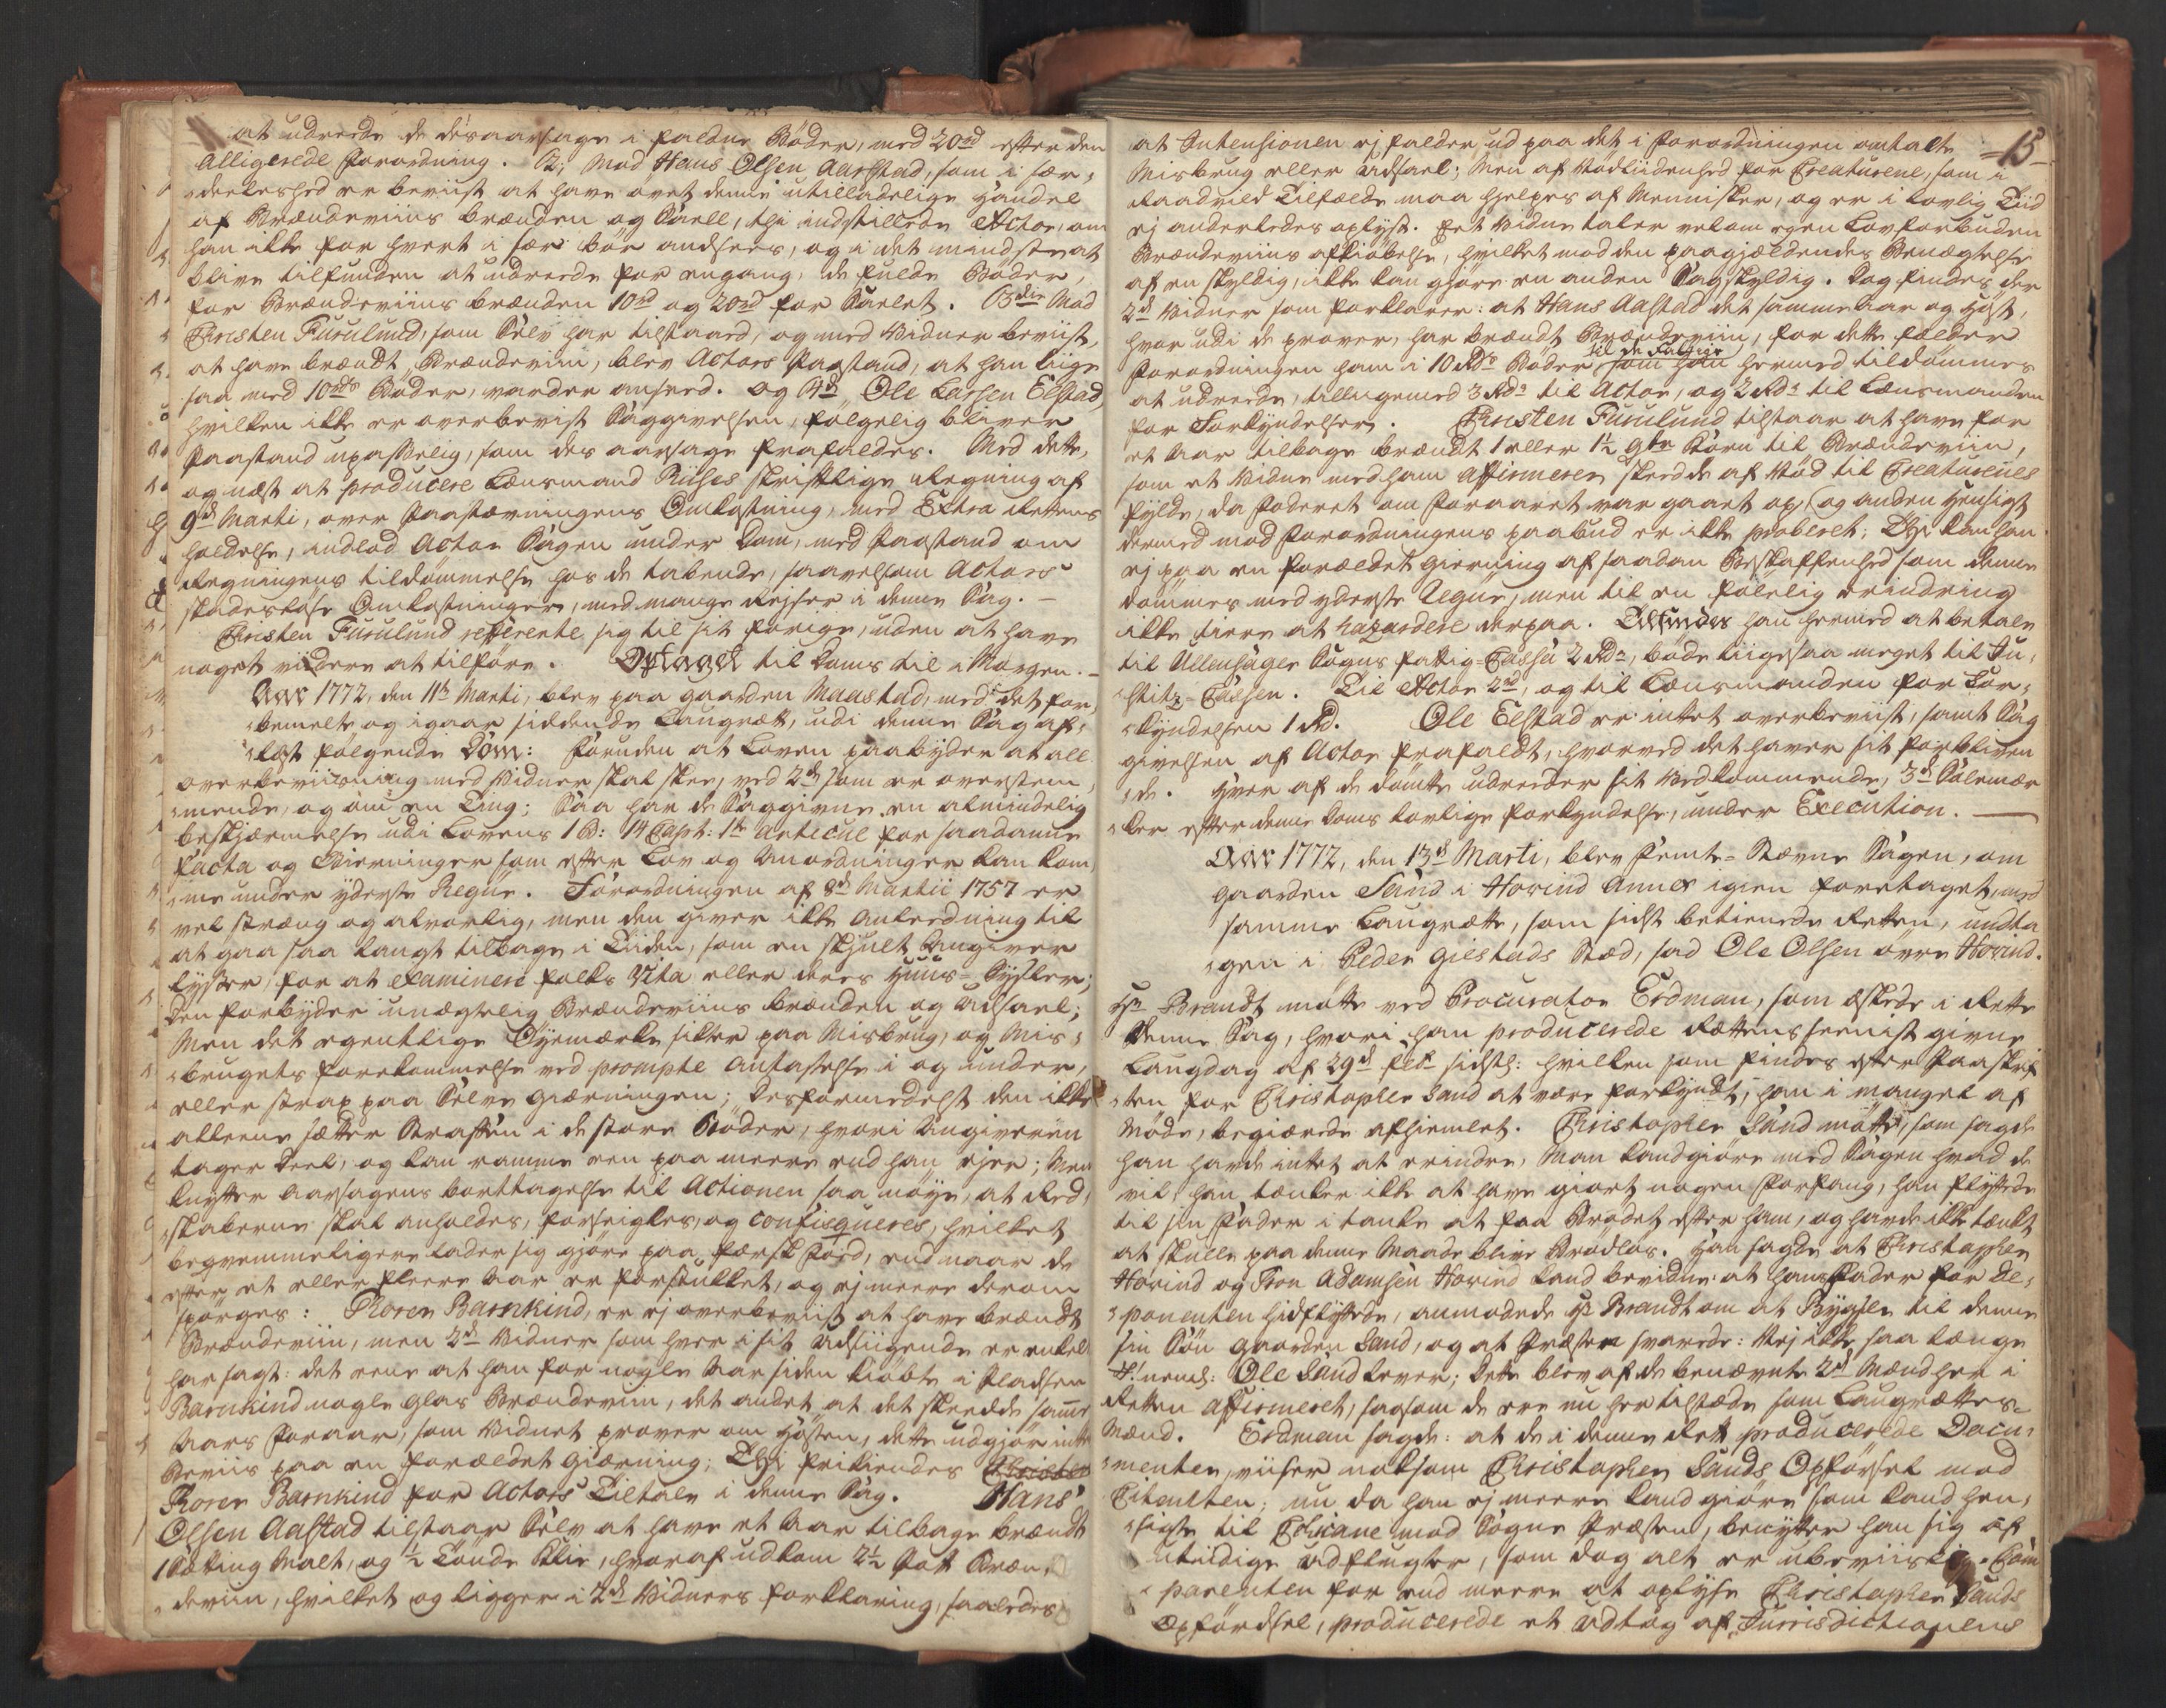 at udreede de desaarsage i faldne Bøder, med 20rd efter den
Alligerede Forordning. 2, Mod Hans Olsen Aarstad, som i sær-
deeleshed er beviist at have øvet denne utilladelige Handel
af Brændeviins brænden og Sæll, thi indstillede Actor, om
han ikke for hvert i sær bør ansees, og i det mindste at
blive tilfunden at udreede for engang, de fulde Bøder,
for Brændeviins brænden 10rd og 20rd for Sælet. 3die Mod
Christen Furulund, som Selv har tilstaaed, og med Vidner beviist,
at have brændt Brændeviin, blev Actors Paastand, at han liige
saa med 10rds Bøder, vorder anseed. og 4de Ole Larsen Elstad,
hvilken ikke er overbeviist Saggivelsen, følgelig bliver
Paastand upasselig, som des aarsage frafaldes. Med dette,
og nest at producere Lænsmand Riises skriftlige Regning af
9de Marti, over Paastævningens Omkostning, med Extra Rettens
holdelse, indlod Actor Sagen under Dom, med Paastand om
Regningens tildømmelse hos de tabende, saavelsom Actors
skadesløse Omkostninger, med mange Reyser i denne Sag. –
Christen Furulund refererte sig til sit forrige, uden at have
noget viidere at tilføre. Optaget til Doms til i Morgen. –
Aar 1772, den 11te Marti, blev paa gaarden Maastad, med det for-
bemelte og igaar siddende Laugrett, udi denne Sag af-
sagt følgende Dom: Foruden at Loven paabyder at all
overbeviisning med Vidner skal skee, ved 2de som er overstem-
mende, og om en Ting; Saa har de Saggivne en almindelig
beskjærmelse udi Lovens 1 B: 14 Capt: 1te Articul for saadanne
Facta og Gierninger som efter Lov og Anordninger kan kom-
me under yderste Regúr. Forordningen af 8de Martii 1757 er
vel stræng og alvorlig, men den giver ikke Anleedning til
at gaa saa langt tilbage i Tiiden, som en skjult Angiver
lyster, for at examinere folks Vita eller deres Huus-Sysler;
Den forbyder unægtelig Brændeviins brænden og udsæl;
Men det egentlige Øyemærke sikter paa Misbrug, og Mis-
brugets forekommelse ved prompte Antastelse i og under,
eller strax paa Selve Giærningen; Desformedelst den ikke
alleene sætter Straffen i de store Bøder, hvori Angiveren
tager Deel, og kan ramme een paa meere end han ejer; Men
knytter Aarsagens borttagelse til Actionen saa nøye, at Red-
skaberne skal anholdes, forseigles, og confisqueres, hvilket
beqvemmeligere lader sig gjøre paa færsk Færd, end naar de
efter et eller fleere Aar er forstukket, og ej meere derom
spørges: Thoren Barnkind, er ej overbeviist at have brændt
Brændeviin, men 2de Vidner som hver i sit udsiigende er enkel
har sagt: det eene at han for nogle Aar siden kiøbte i Pladsen
Barnkind nogle glas Brændeviin, det andet at det skeedde samme
Aars Foraar, som Vidnet prøver om Høsten, dette udgjør intet
Beviis paa en forældet Giærning; Thi frikiendes
Thoren Barnkind for Actors Tiltale i denne Sag. Hans
Olsen Aalstad tilstaar Selv at have et Aar tilbage brændt
1 Sætting Malt, og ½ Tønde Klie, hvoraf udkom 2½ Pott Bræn-
deviin, hvilket og ligger i 2de Vidners forklaring, saaledes
15
at Intensionen ej falder ud paa det i Forordningen omtalte
Misbrug eller udsæl; Men af Nødliidenhed for Creaturene, som i
Raadvild Tilfælde maa hjelpes af Mennisker, og er i lovlig Tiid
ej anderledes oplyst. Eet Vidne taler vel om egen Lovforbuden
Brændeviins afkiøbelse, hvilket mod den paagjældendes Benægtelse
af en skyldig, ikke kan gjøre en anden Sagskyldig. Dog findes der
2de Vidner som forklarer: at Hans Aalstad det samme Aar og Høst,
hvorudi de prøver, har brændt Brændeviin, for dette falder
Forordningen ham i 10 Rdr Bøder til de Fattige som han hermed tildømmes
at udreede, tilligemed 3 Rdr til Actor, og 2 Rdr til Lænsmanden
for Forkyndelsen. Christen Furulund tilstaar at have for
et Aar tilbage brændt 1 eller 1½ qtr Korn til Brændeviin,
som et Vidne med ham affirmerer skeedde af Nød til Creaturenes
fylde, da Foderet om Foraaret var gaaet op, og anden Hensigt
dermed mod Forordningens paabud er ikke proberet; Thi kan han
ej paa en forældet gierning af saadan Beskaffenhed som denne
dømmes med yderste Regúr, men til en følelig erindring
ikke tiere at hazardere derpaa. Tilfindes han hermed at betale
til Ullensager Sogns fattig-Cassa 2 Rdr, bøde liigesaa meget til Ju-
stitz-Cassen. Til Actor 2rd, og til Lænsmanden for For-
kyndelsen 1 Rd. Ole Elstad er intet overbeviist, samt Sag
givelsen af Actor frafaldt, hvorved det haver sit forbliven
de. Hver af de dømte udreeder sit Vedkommende, 3de Solemær
ker efter denne Doms lovlige forkyndelse, under Execution. —
Aar 1772, den 13de Marti, blev Femte-Stævne Sagen, om
gaarden Sand i Hovind Annex igien foretaget, med
samme Laugrette, som sidst betienede Retten, undta
gen i Peder Gielstads Stæd, sad Ole Olsen øvre Hovind.
Hr Brandt møtte ved Procurator Erdman, som æskede i Rette
denne Sag, hvori han producerede Rettens seenist givne
Laugdag af 29de feb: sidstl: hvilken som findes efter Paaskrif
ten for Christopher Sand at være forkyndt, han i mangel af
Møde, begiærede afhiemlet. Christopher Sand møtte, som sagde
han havde intet at erindre, Man kand giøre med Sagen hvad de
vil, han tænker ikke at have giort nogen Forfang, han flyttede
til sin Fader i tanke at faa Brødet efter ham, og havde ikke tænkt
at skulle paa denne Maade blive Brødløs. Han sagde at Christopher
Hovind og Iver Adamsen Hovind kand bevidne at hans Fader før De-
ponenten hidflyttede, anmodede Hr Brandt om at Bygsle til denne
sin Søn gaarden Sand, og at Præsten svarede: Nej ikke saa længe
nemlig: Ole Sand lever; Dette blev af de benævnte 2de Mænd her i
Retten affirmeret, saasom de ere nu her tilstæde som Laugrettes-
Mænd. Erdman sagde: at de i denne Rett producerede Docu-
menter, viiser noksom Christopher Sands Opførsel mod
Citanten; nu da han ej meere kand giøre som kand hen-
sigte til Chicane mod Sogne Præsten, benytter han sig af
utiidige Udflugter, som dog alt er ubeviislig. Com
parenten for end meere at oplyse Christopher Sands
Opførdsel, producerede et Udtog af Jurisdictionens